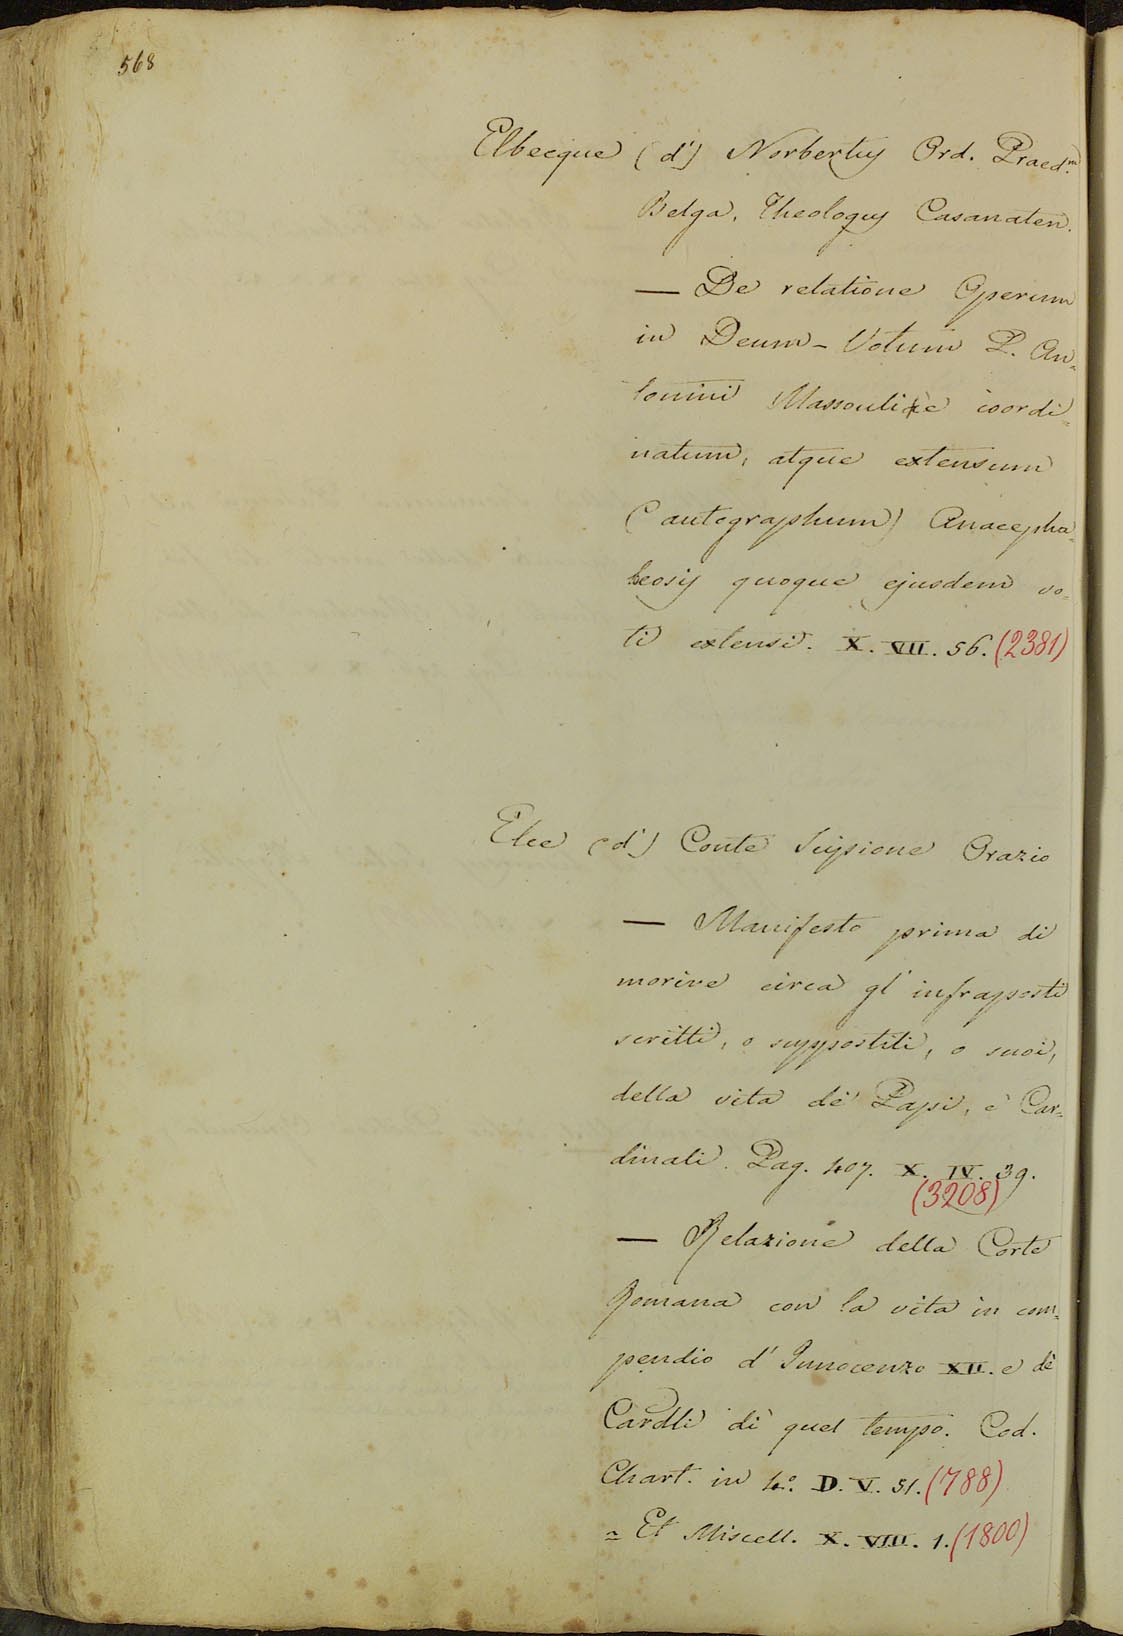 568
Elbecque (d') Norbertus Ord. Praed.m
Belga, Theologus Casanaten.
— De relatione Operum
in Deum – Votum P. An=
tonini Massoulié coordi=
natum, atque extensum
(autographum) Anacepha=
leosis quoque ejusdem vo=
ti extensi. X. VII. 56. (2381)
Elce (d') Conte Scipione Orazio
— Manifesto prima di
morire circa gl'infraposti
scritti, o suppostiti, o suoi,
della vita de' Papi, e Car=
dinali. Pag. 407. X. IV. 39.
(3208)
— Relazione della Corte
Romana con la vita in com=
pendio d'Innocenzo XII. e de'
Cardli di quel tempo. Cod.
Chart. in 4.º D. V. 51. (788)
= Et Miscell. X. VIII. 1. (1800)